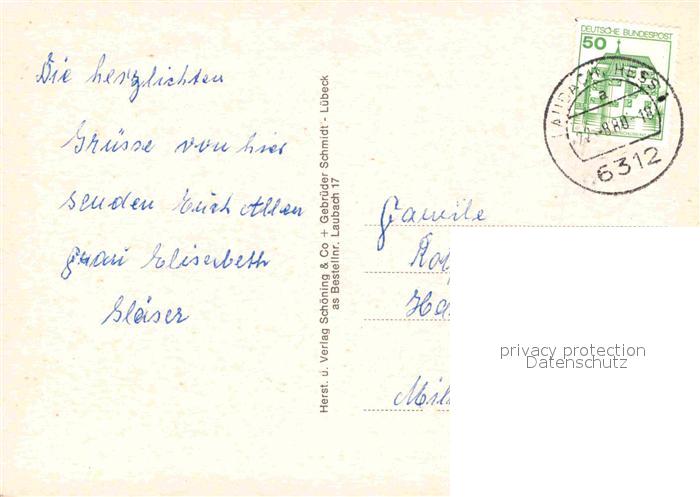 Die herzlichten
Grüsse von hier
senden Euch Allen
Frau Eliserbeth
Gläser
Herst. u. Verlag Schöning & Co + Gebrüder Schmidt - Lübeck
as Bestellnr. Laubach 17
DEUTSCHE BUNDESPOST
50
LAUBACH, HESS
a
6312
Familie
privacy protection
Datenschutz